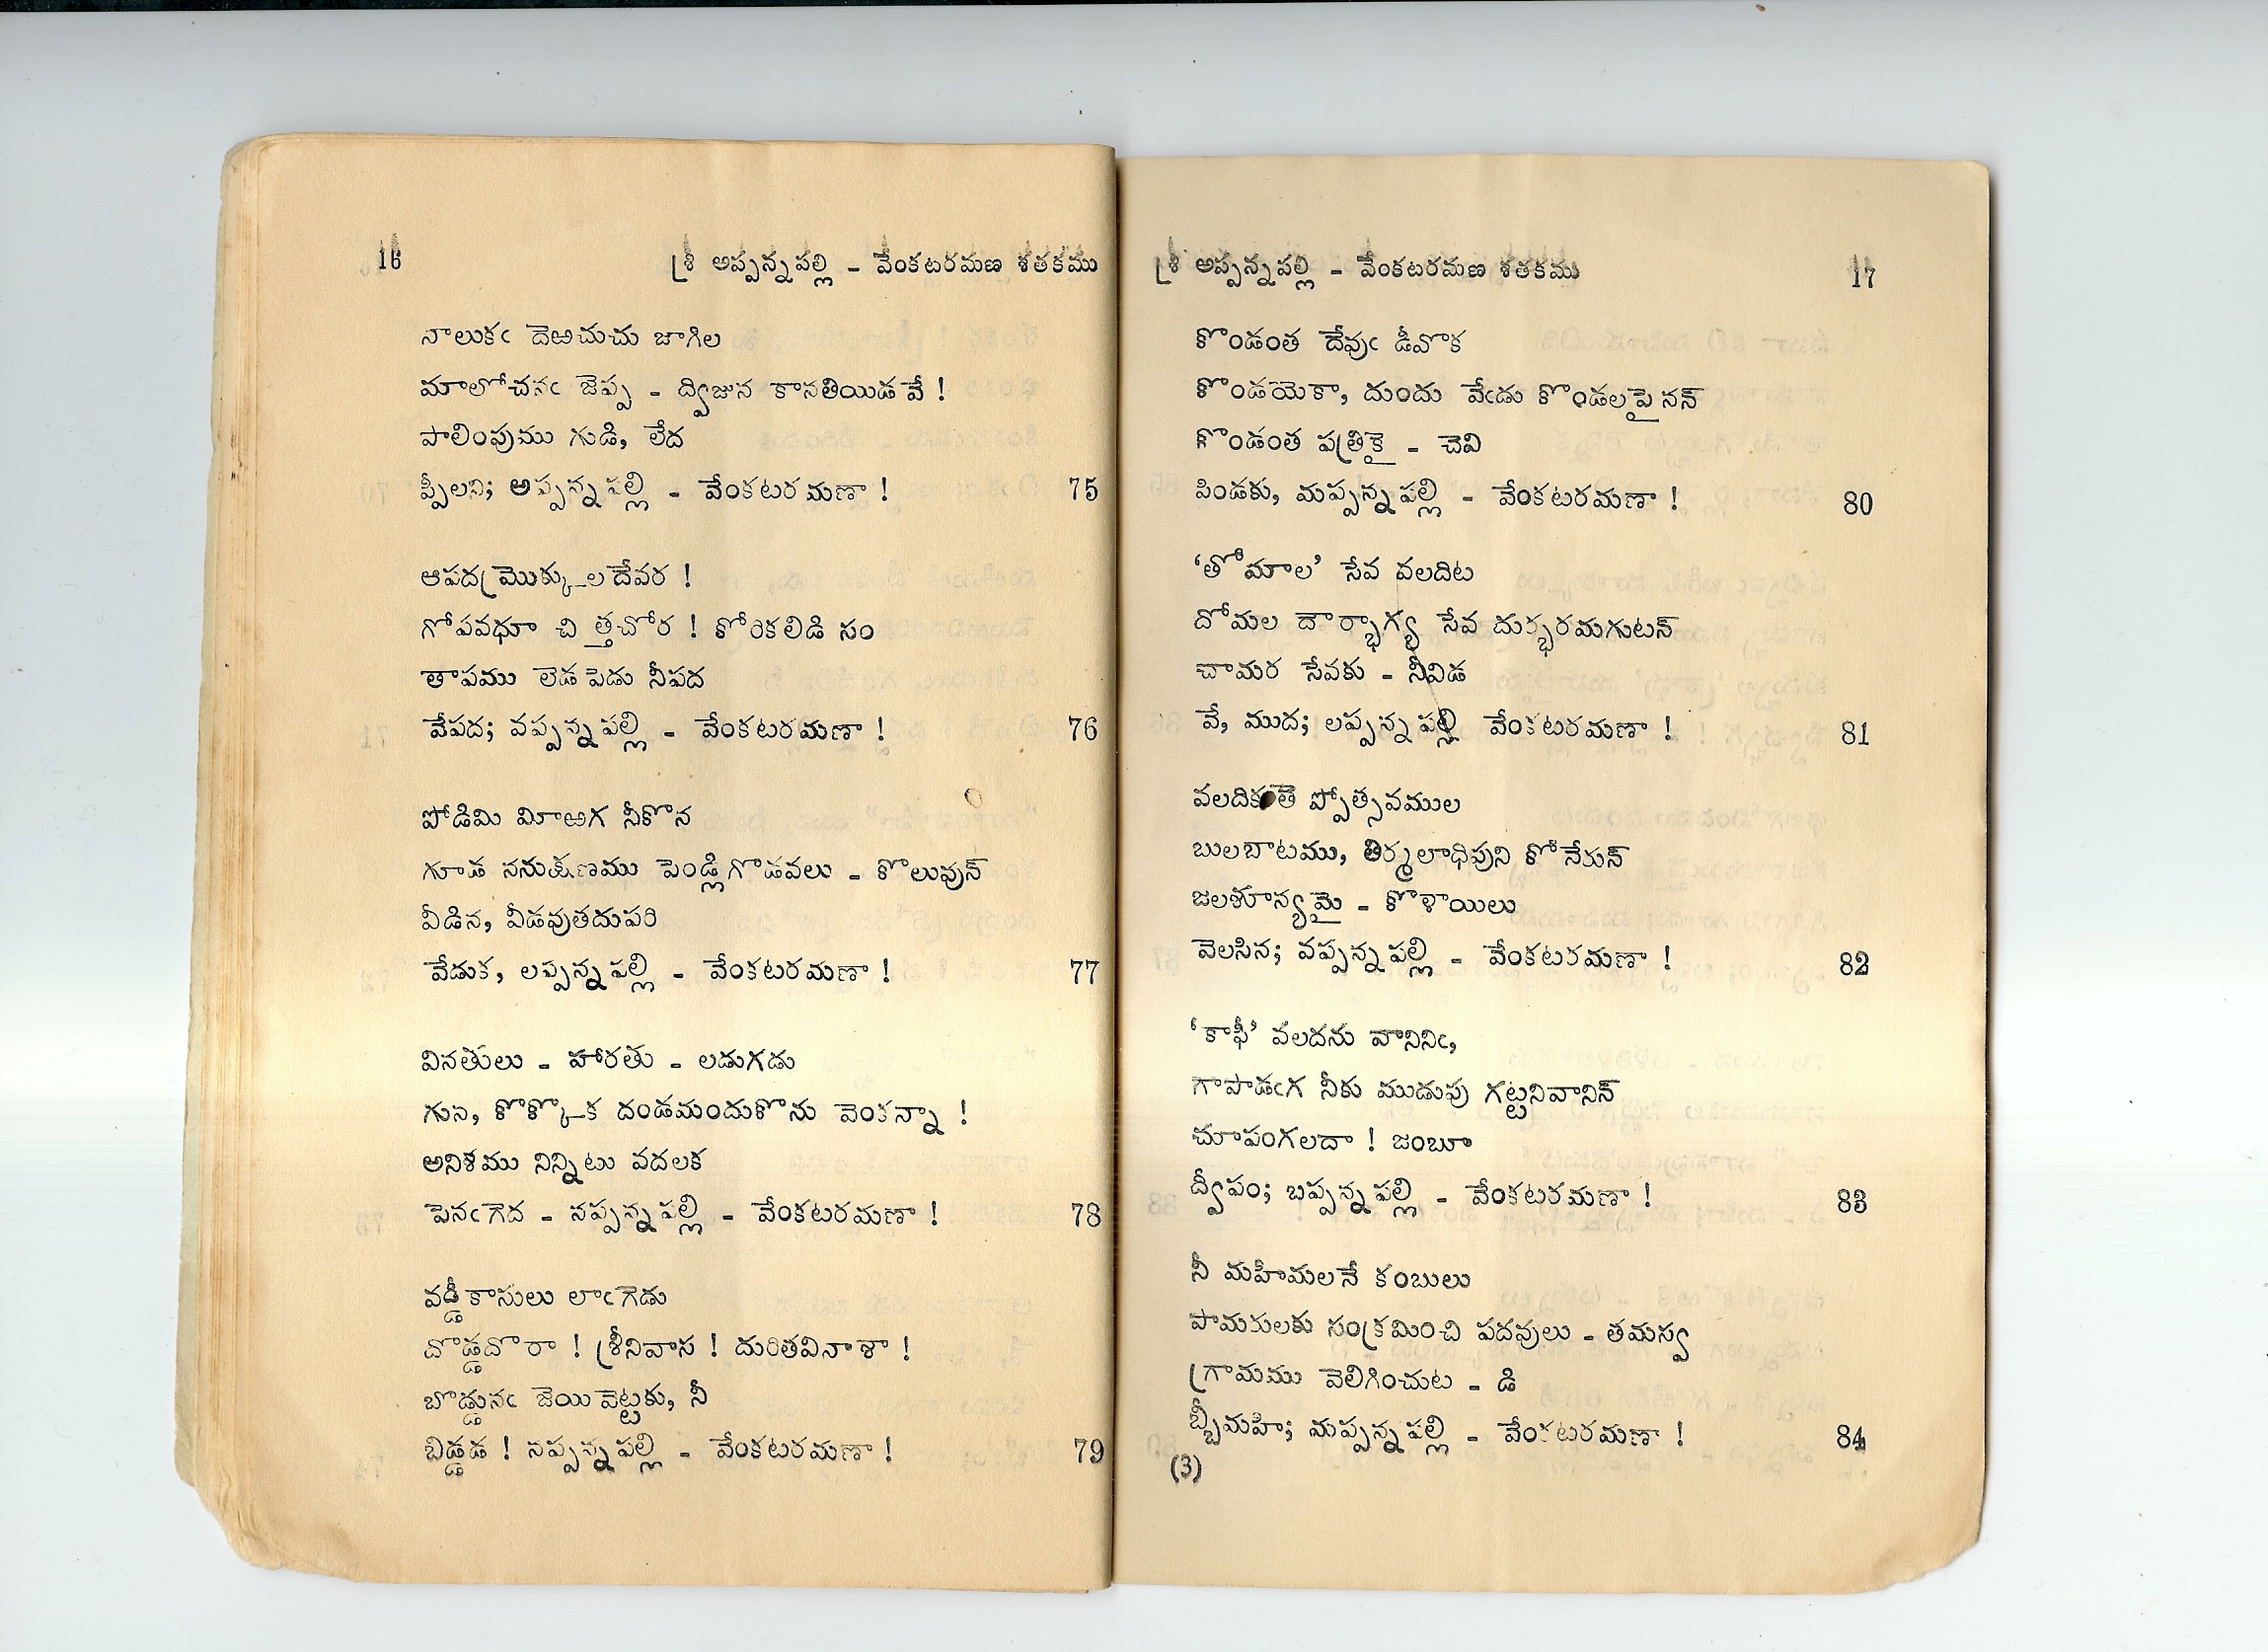 16
శ్రీ అప్పన్నపల్లి - వేంకటరమణ శతకము
నాలుకఁ దెఱచుచు జాగిల
మాలోచనఁ జెప్ప - ద్విజున కానతియిడవే !
పాలింపుము గుడి, లేద
ప్పీలని; అప్పన్నపల్లి - వేంకటరమణా ! 75
ఆపద మ్రొక్కులదేవర !
గోపవధూ చిత్తచోర ! కోరికలిడి సం
తాపము లెడపెడు నీపద
వేపద; వప్పన్నపల్లి - వేంకటరమణా ! 76
పోడిమి మీఱగ నీకొన
గూడ ననుక్షణము పెండ్లిగొడవలు - కొలువున్
వీడిన, వీడవుతదుపరి
వేడుక, లప్పన్నపల్లి - వేంకటరమణా ! 77
వినతులు - హారతు - లడుగడు
గున, కొక్కొక దండమందుకొను వెంకన్నా !
అనిశము నిన్నిటు వదలక
పెనఁగెద - నప్పన్నపల్లి - వేంకటరమణా ! 78
వడ్డీకాసులు లాఁగెడు
దొడ్డదొరా ! శ్రీనివాస ! దురితవినాశా !
బొడ్డునఁ జెయివెట్టకు, నీ
బిడ్డడ ! నప్పన్నపల్లి - వేంకటరమణా ! 79
శ్రీ అప్పన్నపల్లి - వేంకటరమణ శతకము
17
కొండంత దేవుఁ డీవొక
కొండయెకా, దుందు వేఁడు కొండలపై నన్
కొండంత పత్రికై - చెవి
పిండకు, మప్పన్నపల్లి - వేంకటరమణా ! 80
‘తోమాల’ సేవ వలదిట
దోమల దౌర్భాగ్య సేవ దుర్భరమగుటన్
చామర సేవకు - నీవిడ
వే, ముద; లప్పన్నపల్లి వేంకటరమణా ! 81
వలదిక తెప్పోత్సవముల
బులబాటము, తిర్మలాధిపుని కోనేరున్
జలశూన్యమై - కొళాయిలు
వెలసిన; వప్పన్నపల్లి - వేంకటరమణా ! 82
‘కాఫీ’ వలదను వానినిఁ,
గాపాడఁగ నీకు ముడుపు గట్టనివానిన్
చూపంగలదా ! జంబూ
ద్వీపం; బప్పన్నపల్లి - వేంకటరమణా ! 83
నీ మహిమలనే కంబులు
పామరులకు సంక్రమించి పదవులు - తమస్వ
గ్రామము వెలిగించుట - డి
బ్బీమహి; మప్పన్నపల్లి - వేంకటరమణా ! 84
(3)